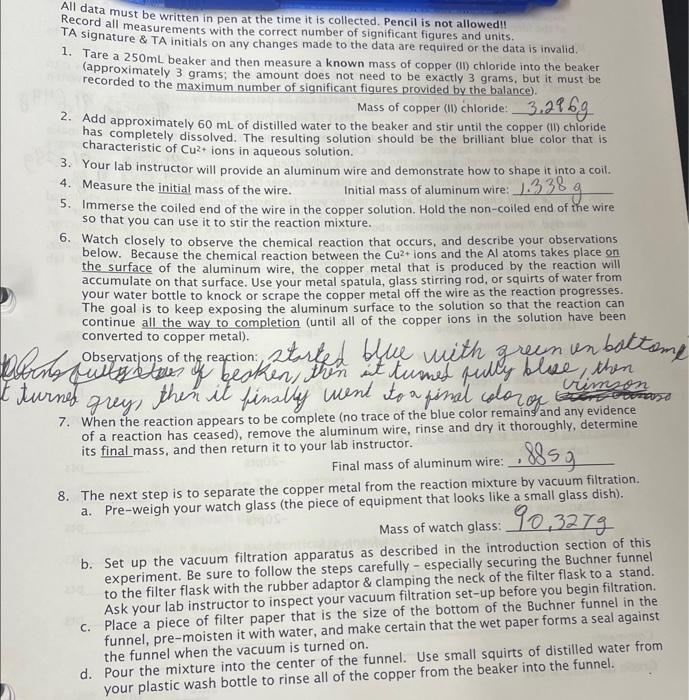 All data must be written in pen at the time it is collected. Pencil is not allowed!!
Record all measurements with the correct number of significant figures and units.
TA signature & TA initials on any changes made to the data are required or the data is invalid.
1. Tare a 250mL beaker and then measure a known mass of copper (II) chloride into the beaker
(approximately 3 grams; the amount does not need to be exactly 3 grams, but it must be
recorded to the maximum number of significant figures provided by the balance).
Mass of copper (II) chloride: 3.296g
2. Add approximately 60 mL of distilled water to the beaker and stir until the copper (II) chloride
has completely dissolved. The resulting solution should be the brilliant blue color that is
characteristic of Cu²⁺ ions in aqueous solution.
3. Your lab instructor will provide an aluminum wire and demonstrate how to shape it into a coil.
4. Measure the initial mass of the wire. Initial mass of aluminum wire: 1.338 g
5. Immerse the coiled end of the wire in the copper solution. Hold the non-coiled end of the wire
so that you can use it to stir the reaction mixture.
6. Watch closely to observe the chemical reaction that occurs, and describe your observations
below. Because the chemical reaction between the Cu²⁺ ions and the Al atoms takes place on
the surface of the aluminum wire, the copper metal that is produced by the reaction will
accumulate on that surface. Use your metal spatula, glass stirring rod, or squirts of water from
your water bottle to knock or scrape the copper metal off the wire as the reaction progresses.
The goal is to keep exposing the aluminum surface to the solution so that the reaction can
continue all the way to completion (until all of the copper ions in the solution have been
converted to copper metal).
Observations of the reaction: started blue with green on bottom
of beaker, then it turned fully blue, then
it turned grey, then it finally went to a final color of crimson
7. When the reaction appears to be complete (no trace of the blue color remains and any evidence
of a reaction has ceased), remove the aluminum wire, rinse and dry it thoroughly, determine
its final mass, and then return it to your lab instructor.
Final mass of aluminum wire: .885g
8. The next step is to separate the copper metal from the reaction mixture by vacuum filtration.
a. Pre-weigh your watch glass (the piece of equipment that looks like a small glass dish).
Mass of watch glass: 90.327g
b. Set up the vacuum filtration apparatus as described in the introduction section of this
experiment. Be sure to follow the steps carefully - especially securing the Buchner funnel
to the filter flask with the rubber adaptor & clamping the neck of the filter flask to a stand.
Ask your lab instructor to inspect your vacuum filtration set-up before you begin filtration.
c. Place a piece of filter paper that is the size of the bottom of the Buchner funnel in the
funnel, pre-moisten it with water, and make certain that the wet paper forms a seal against
the funnel when the vacuum is turned on.
d. Pour the mixture into the center of the funnel. Use small squirts of distilled water from
your plastic wash bottle to rinse all of the copper from the beaker into the funnel.